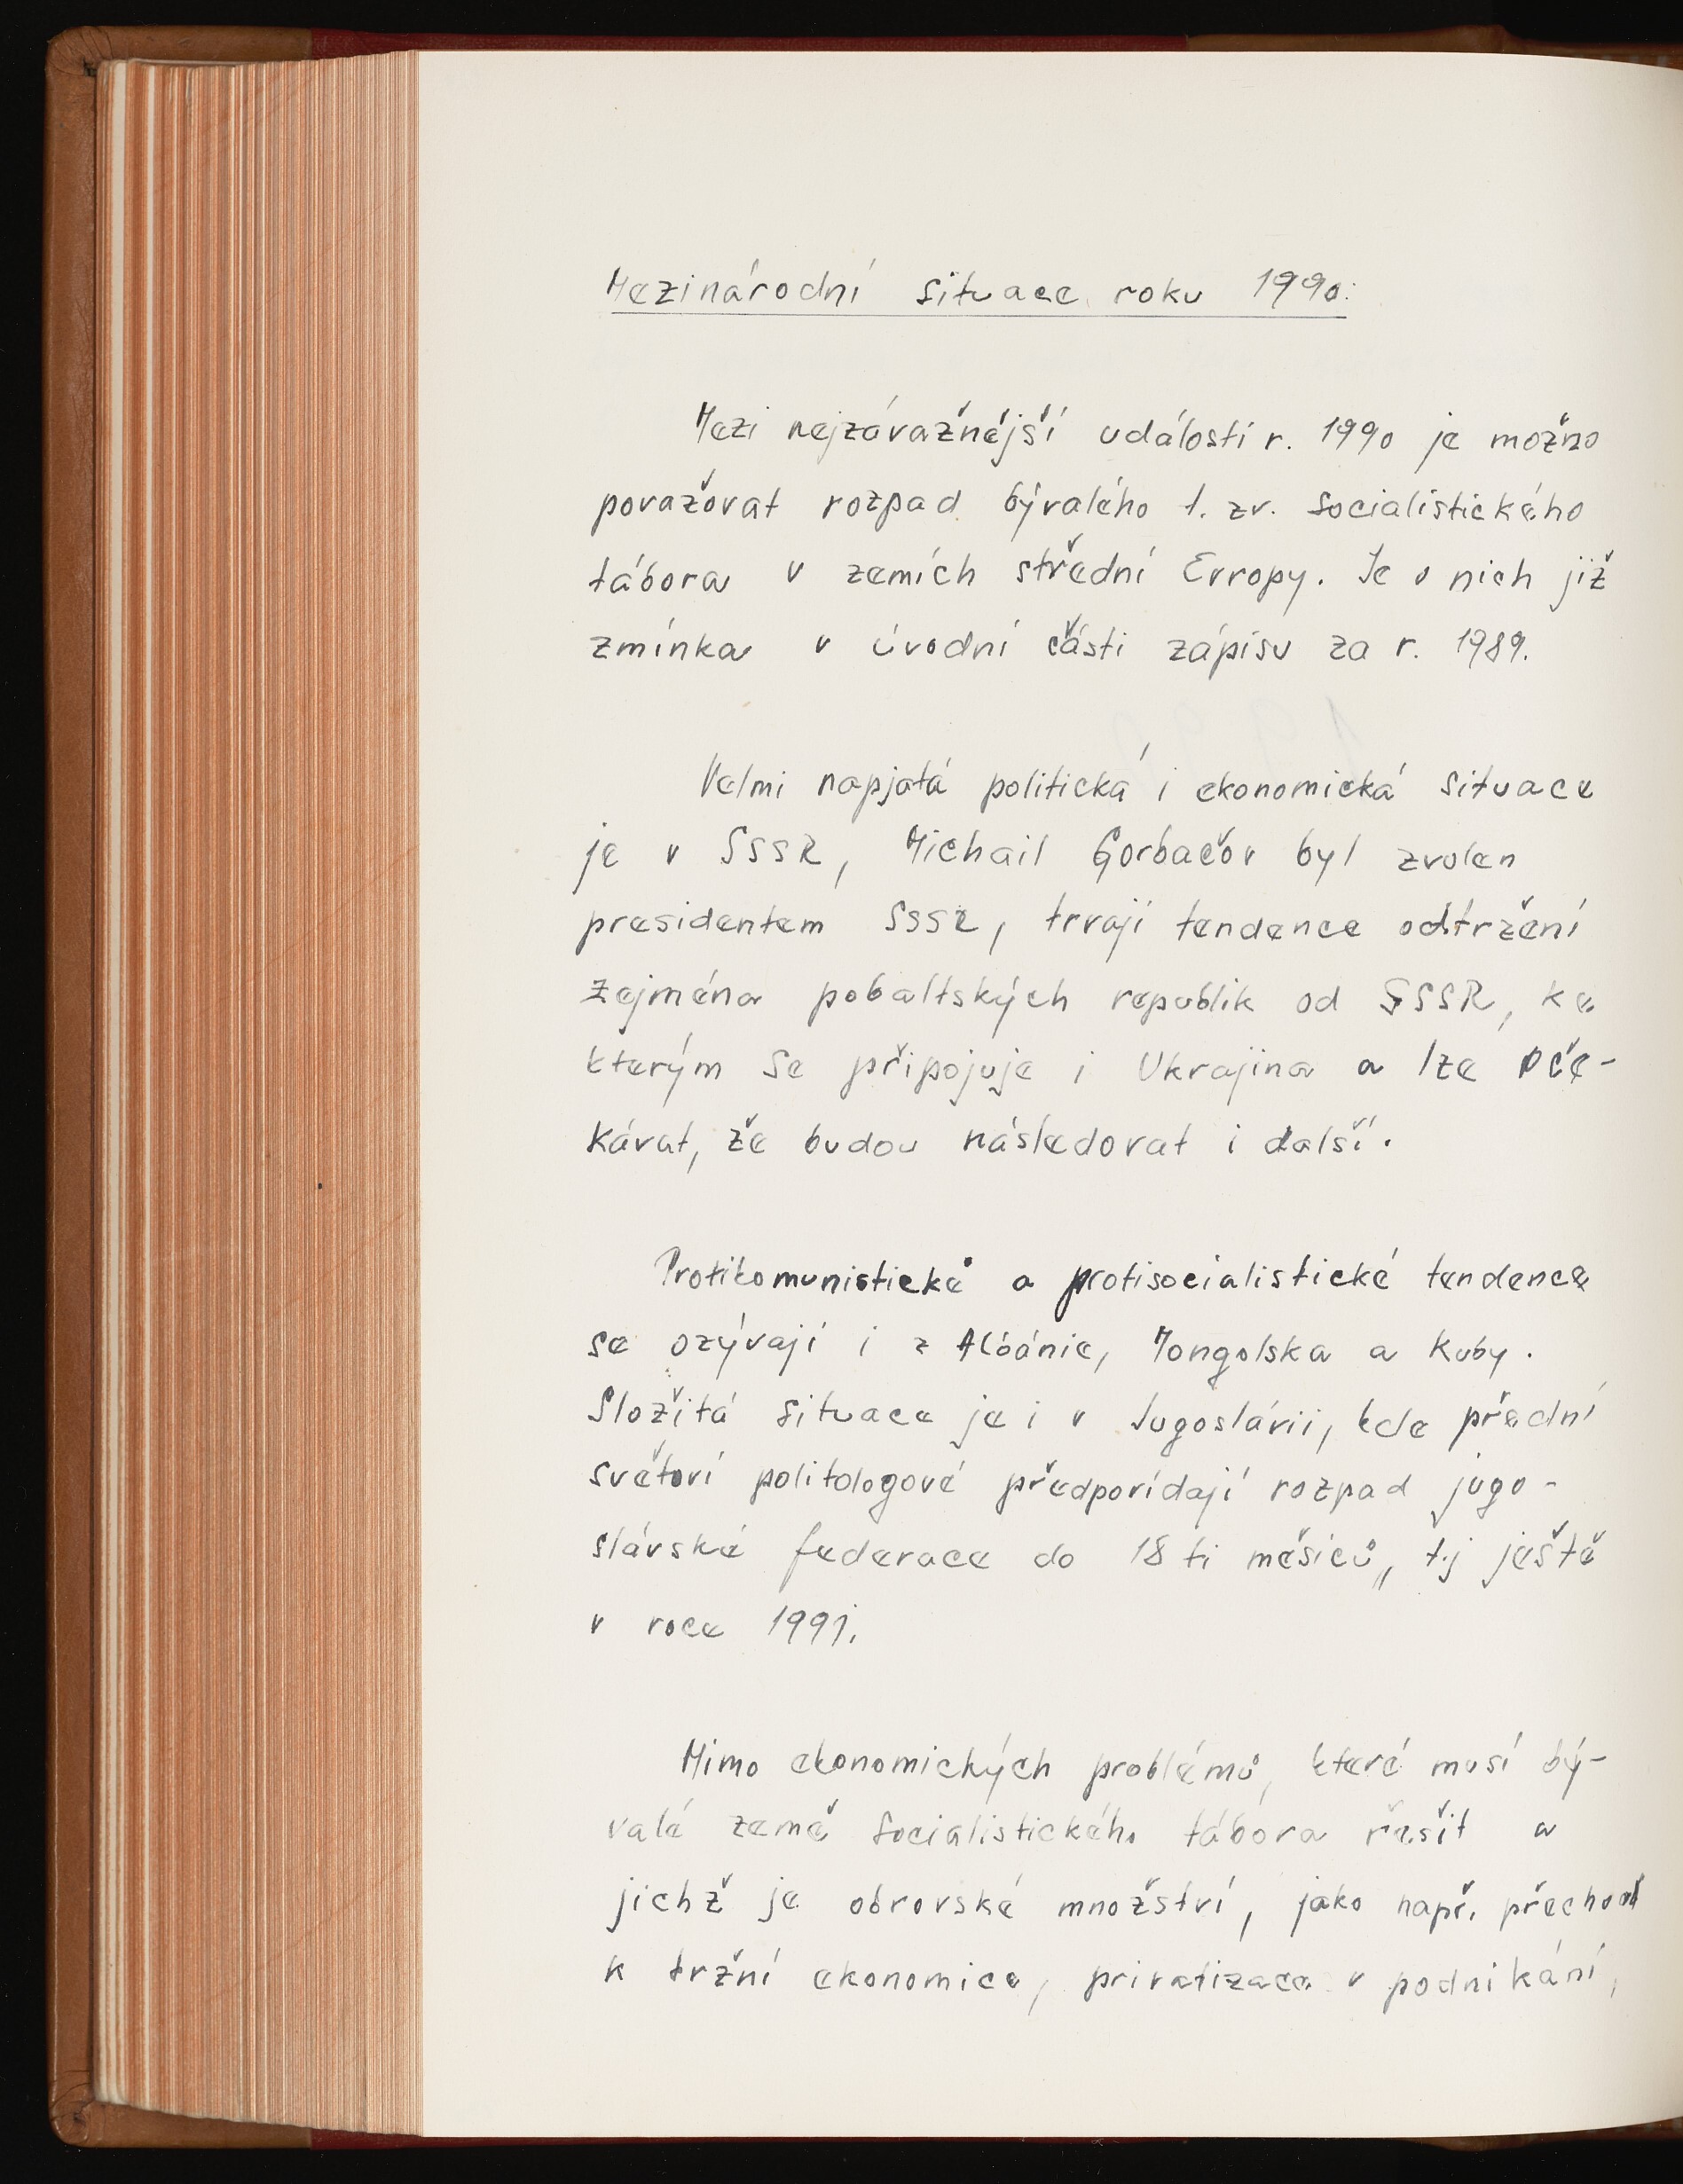 Mezinárodní situace roku 1990:
Mezi nejzávažnější události r. 1990 je možno
považovat rozpad bývalého t. zv. socialistického
tábora v zemích střední Evropy. Je o nich již
zmínka v úvodní části zápisu za r. 1989.
Velmi napjatá politická i ekonomická situace
je v SSSR, Michail Gorbačov byl zvolen
presidentem SSSR, trvají tendence odtržení
zejména pobaltských republik od SSSR, ke
kterým se připojuje i Ukrajina a lze oče-
kávat, že budou následovat i další.
Protikomunistické a protisocialistické tendence
se ozývají i z Albánie, Mongolska a Kuby.
Složitá situace je i v Jugoslávii, kde přední
světoví politologové předpovídají rozpad jugo-
slávské federace do 18 ti měsíců, tj ještě
v roce 1991.
Mimo ekonomických problémů, které musí bý-
valé země socialistického tábora řešit a
jichž je obrovské množství, jako např. přechod
k tržní ekonomice, privatizace v podnikání,